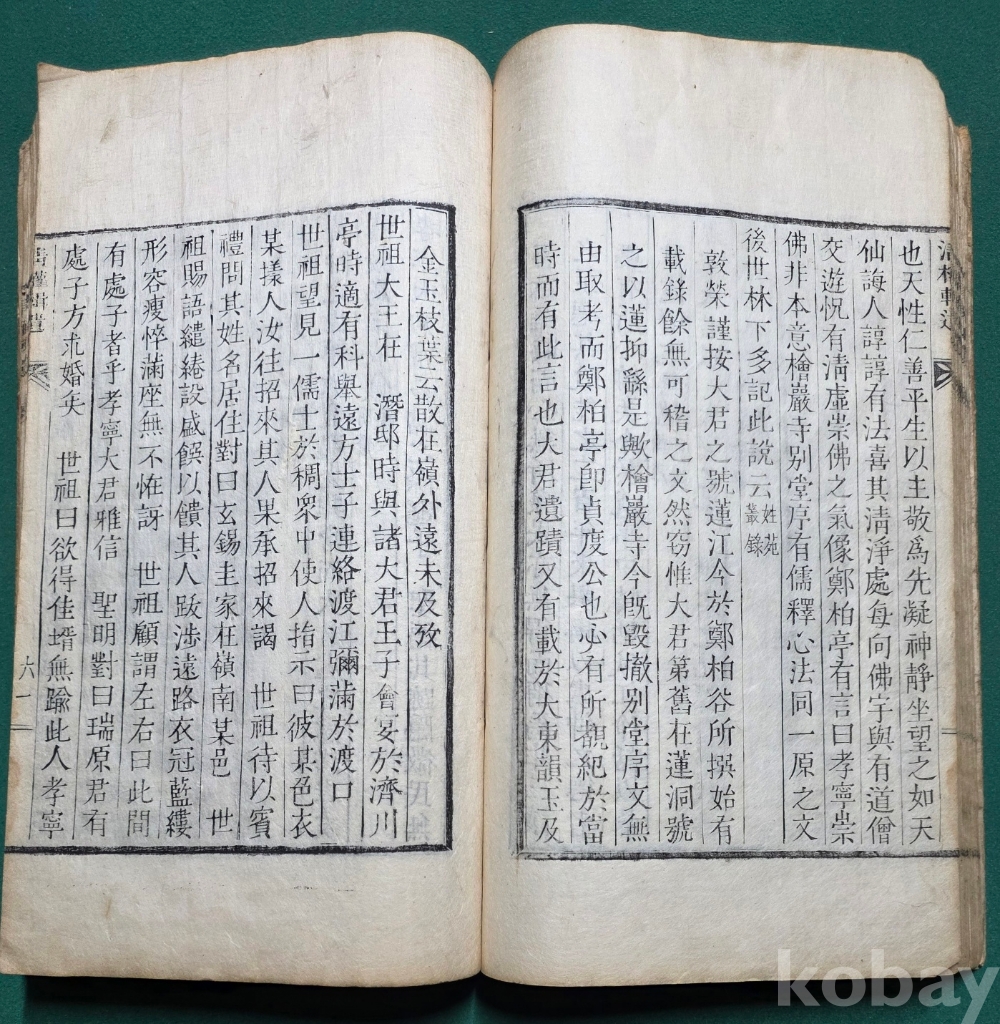 也天性仁善平生以主敬爲先凝神靜坐望之如天
仙誨人諄諄有法喜其淸淨處每向佛宇與有道僧
交遊怳有淸虛崇佛之氣像鄭柏亭有言曰孝寧崇
佛非本意檜巖寺别堂序有儒釋心法同一原之文
後世林下多記此說云
姓苑
叢錄
敦榮謹按大君之號蓮江今於鄭柏谷所撰始有
載錄餘無可稽之文然窃惟大君第舊在蓮洞號
之以蓮抑繇是歟檜巖寺今旣毀撤别堂序文無
由取考而鄭柏亭卽貞度公也心有所覩紀於當
時而有此言也大君遺蹟又有載於大東韻玉及
金玉枝葉云散在嶺外遠未及攷
世祖大王在 潛邸時與諸大君王子會宴於濟川
亭時適有科舉遠方士子連絡渡江彌滿於渡口
世祖望見一儒士於稠衆中使人指示曰彼某色衣
某㨾人汝往招來其人果承招來謁 世祖待以賓
禮問其姓名居住對曰玄錫圭家在嶺南某邑 世
祖賜語繾綣設盛饌以饋其人跋涉遠路衣冠藍縷
形容瘦悴滿座無不恠訝 世祖顧謂左右曰此間
有處子者乎孝寧大君雅信 聖明對曰瑞原君有
處子方求婚矣 世祖曰欲得佳壻無踰此人孝寧
六一
kobay